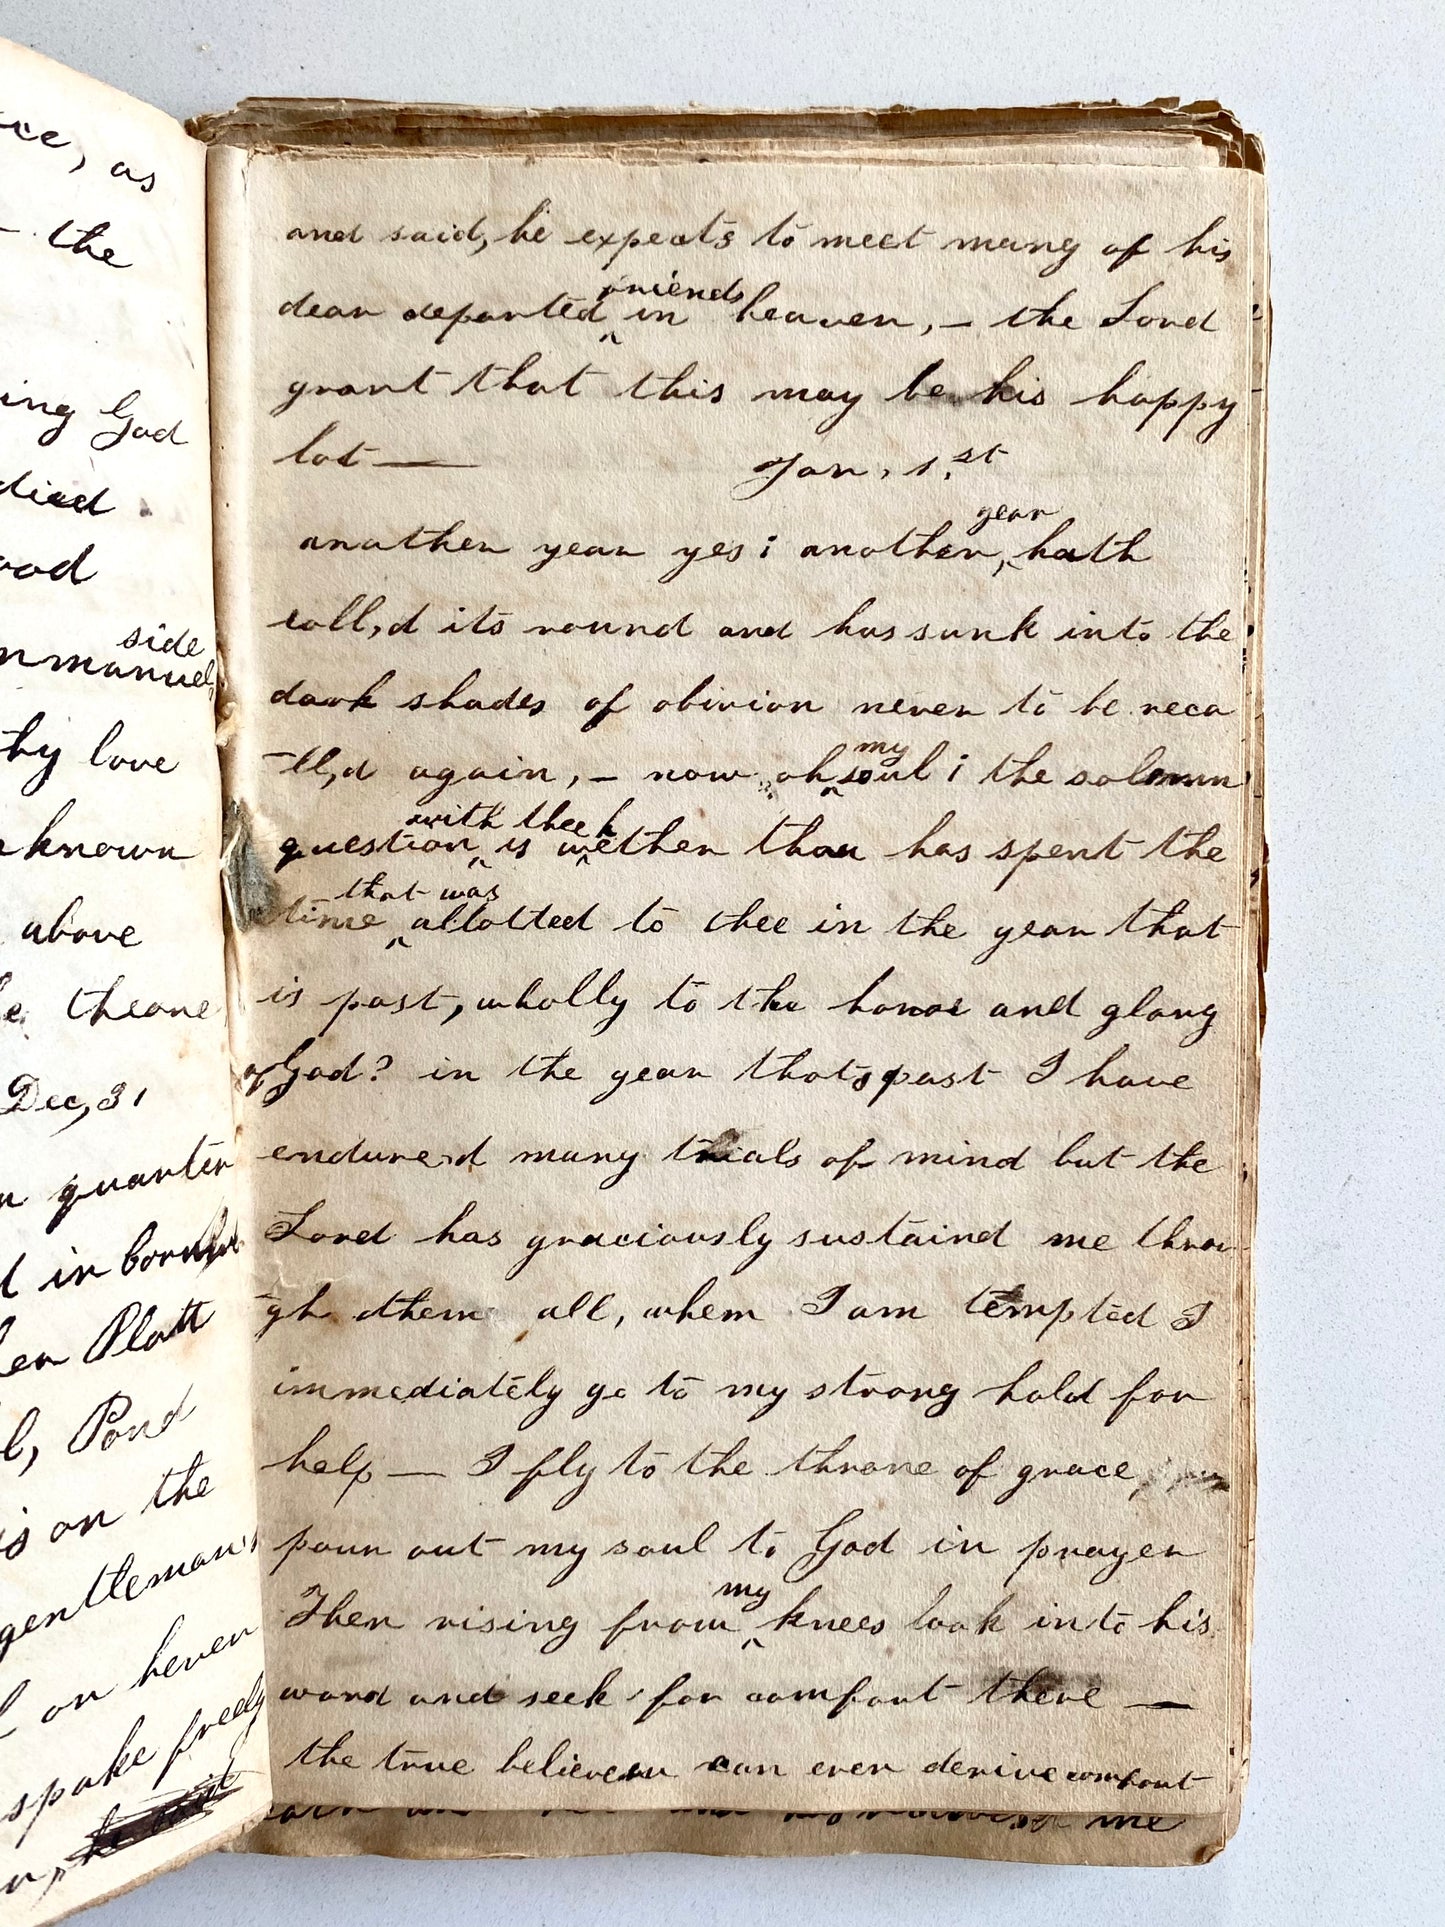 ce, as
the
ing God
died
ood
side
nmanuel,
thy love
known
above
throne
Dec, 31
quarter
in
Platt
Pond
is on the
gentleman,s
on heven
spoke freely
and said, he expects to meet many of his
dear departed ^friends in heaven, – the Lord
grant that this may be his happy
lot —
Jan, 1.st
another year yes ; another, ^year hath
roll,d its round and has sunk into the
dark shades of obivion never to be reca
-ll,d again, – now oh ^my soul ; the solemn
question ^with thee is w^hether thou has spent the
time ^that was allotted to thee in the year that
is past, wholly to the honor and glory
of God? in the year thats past I have
endured many trials of mind but the
Lord has graciously sustaind me throu-
-gh them all, when I am tempted I
immediately go to my strong hold for
help — I fly to the throne of grace,
pour out my soul to God in prayer
Then rising from ^my knees look into his
word and seek for comfort there —
the true believer can ever derive comfort
me